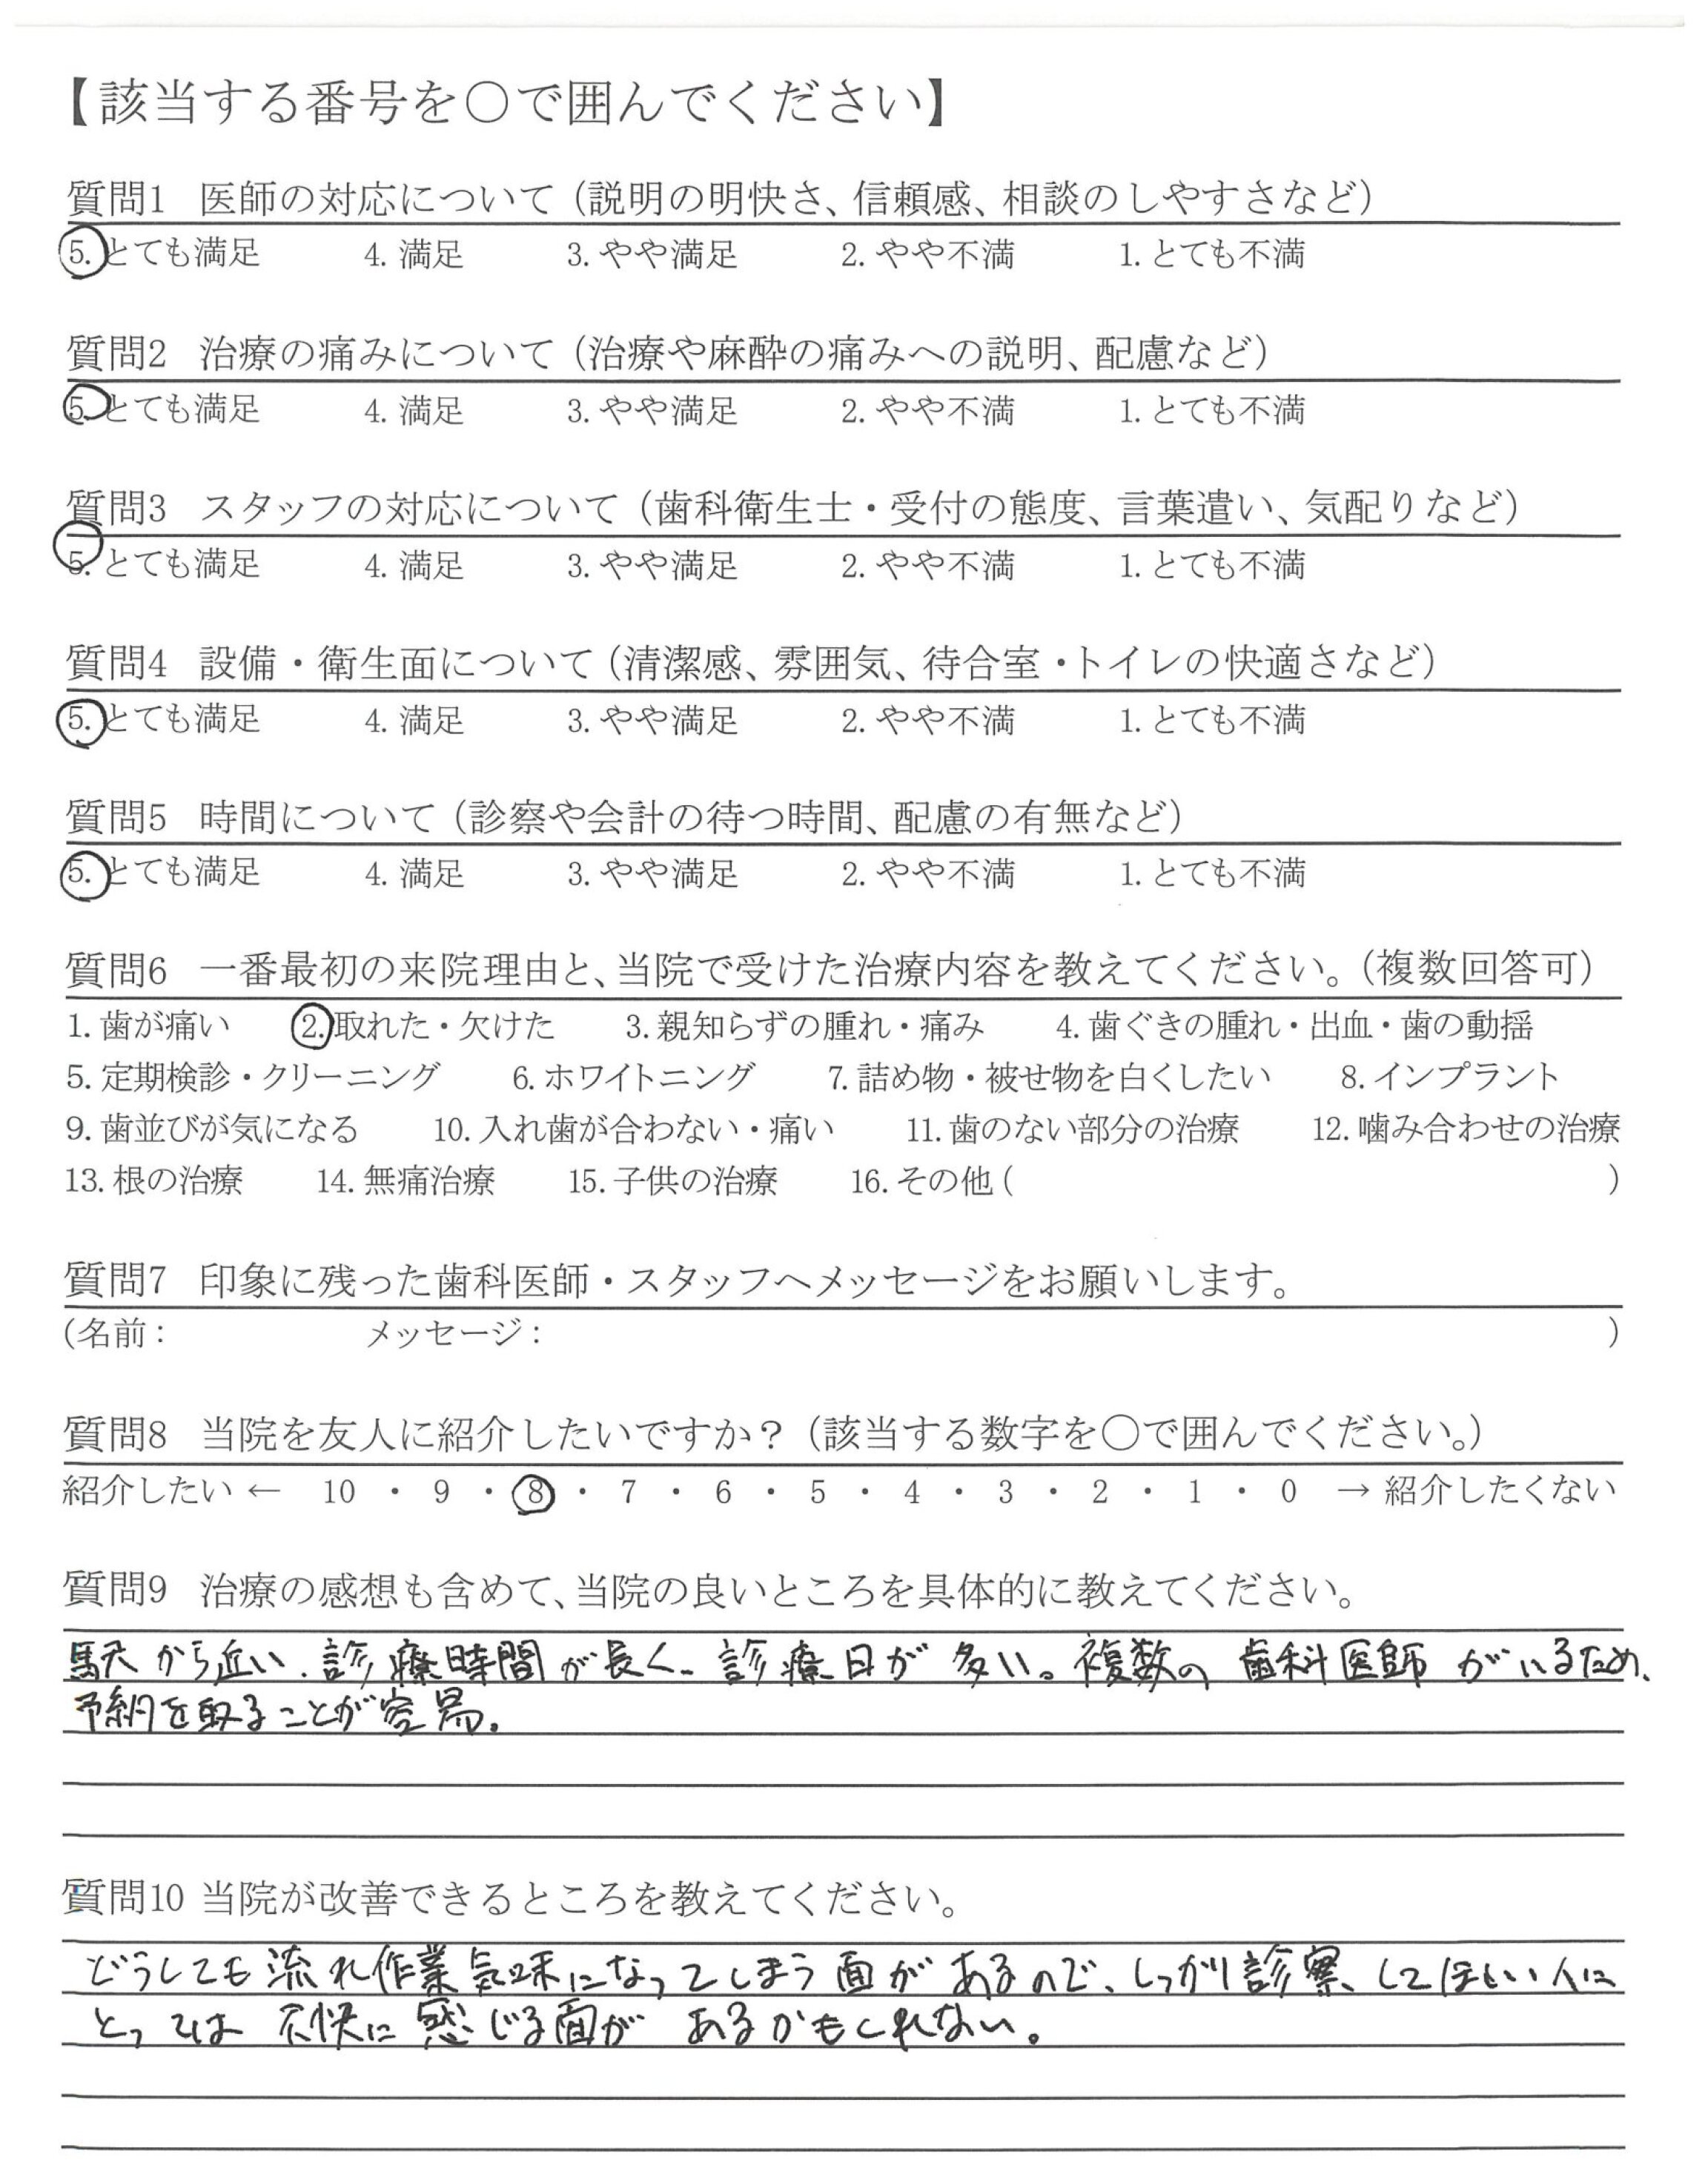 【該当する番号を○で囲んでください】
質問1 医師の対応について（説明の明快さ、信頼感、相談のしやすさなど）
5. とても満足 4. 満足 3. やや満足 2. やや不満 1. とても不満
質問2 治療の痛みについて（治療や麻酔の痛みへの説明、配慮など）
5. とても満足 4. 満足 3. やや満足 2. やや不満 1. とても不満
質問3 スタッフの対応について（歯科衛生士・受付の態度、言葉遣い、気配りなど）
5. とても満足 4. 満足 3. やや満足 2. やや不満 1. とても不満
質問4 設備・衛生面について（清潔感、雰囲気、待合室・トイレの快適さなど）
5. とても満足 4. 満足 3. やや満足 2. やや不満 1. とても不満
質問5 時間について（診察や会計の待つ時間、配慮の有無など）
5. とても満足 4. 満足 3. やや満足 2. やや不満 1. とても不満
質問6 一番最初の来院理由と、当院で受けた治療内容を教えてください。（複数回答可）
1. 歯が痛い 2. 取れた・欠けた 3. 親知らずの腫れ・痛み 4. 歯ぐきの腫れ・出血・歯の動揺
5. 定期検診・クリーニング 6. ホワイトニング 7. 詰め物・被せ物を白くしたい 8. インプラント
9. 歯並びが気になる 10. 入れ歯が合わない・痛い 11. 歯のない部分の治療 12. 噛み合わせの治療
13. 根の治療 14. 無痛治療 15. 子供の治療 16. その他（ ）
質問7 印象に残った歯科医師・スタッフへメッセージをお願いします。
（名前： メッセージ： ）
質問8 当院を友人に紹介したいですか？（該当する数字を○で囲んでください。）
紹介したい ← 10 ・ 9 ・ 8 ・ 7 ・ 6 ・ 5 ・ 4 ・ 3 ・ 2 ・ 1 ・ 0 → 紹介したくない
質問9 治療の感想も含めて、当院の良いところを具体的に教えてください。
駅から近い、診療時間が長く、診療日が多い。複数の歯科医師がいるため、
予約を取ることが容易。
質問10 当院が改善できるところを教えてください。
どうしても流れ作業気味になってしまう面があるので、しっかり診察してほしい人に
とっては不快に感じる面があるかもしれない。